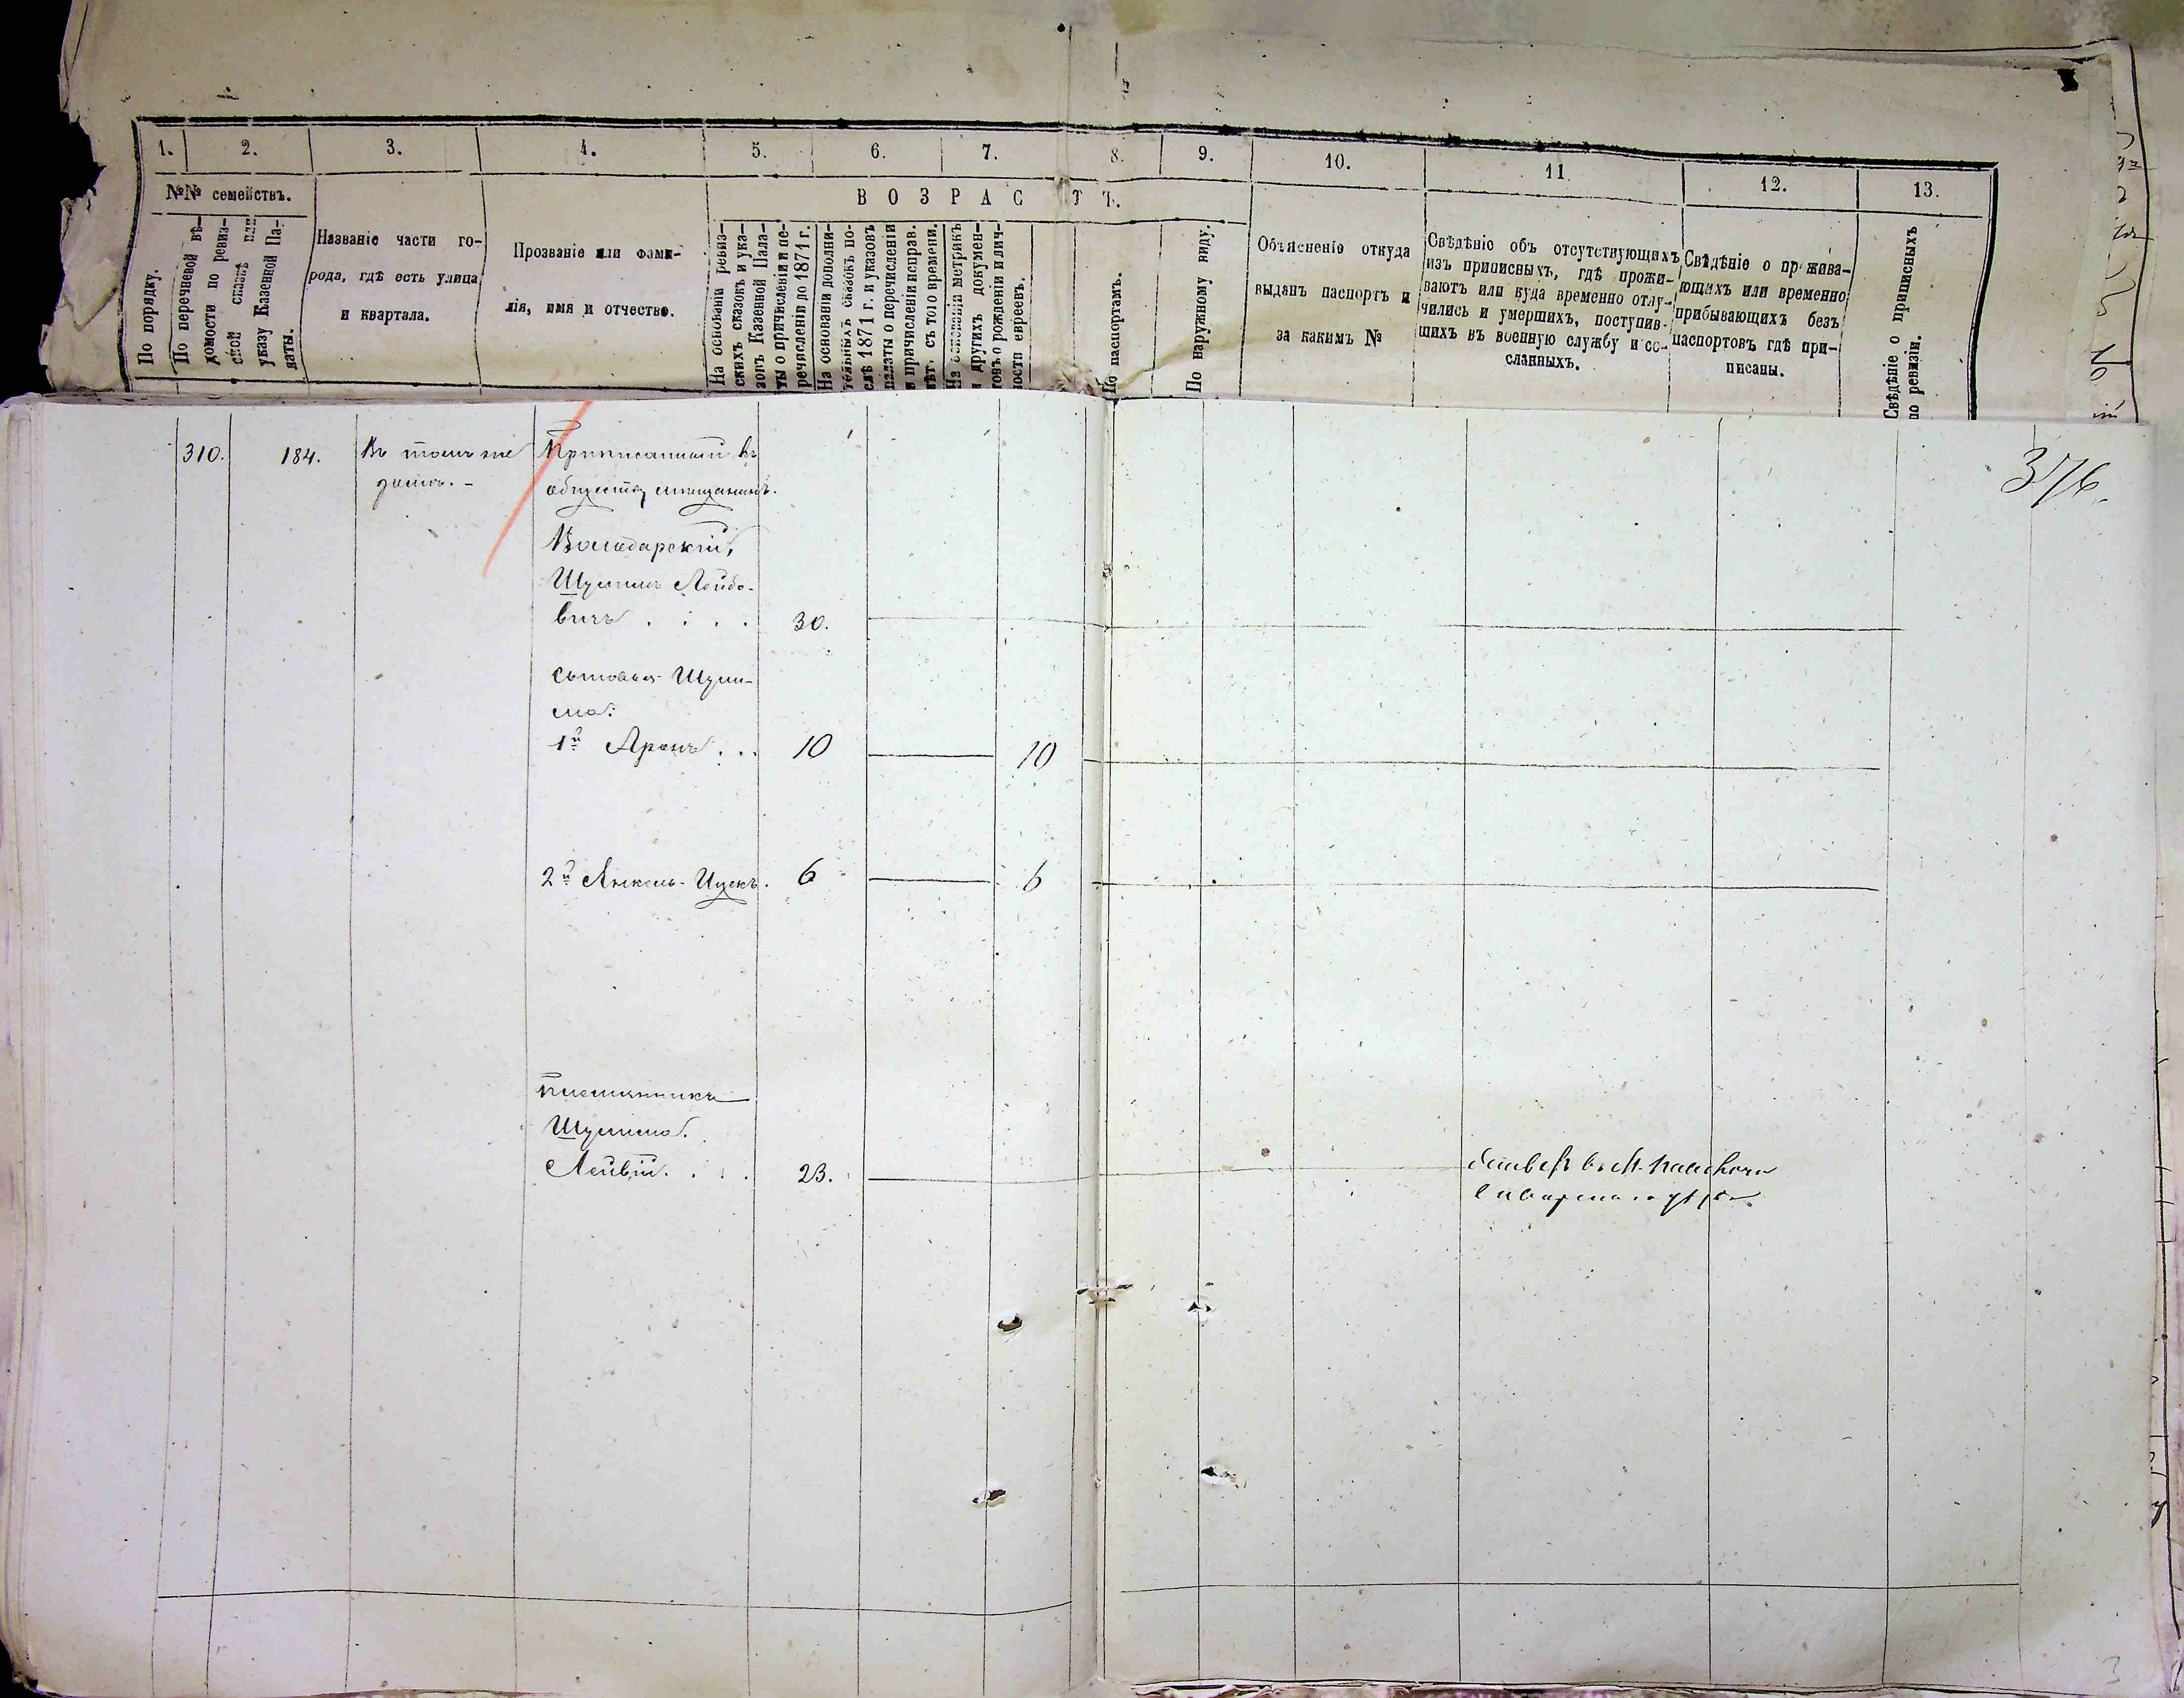 1. 2. 3. 4. 5. 6. 7. 8. 9. 10. 11. 12. 13.
№№ семействъ.
По порядку.
По перечневой вѣ-
домости по ревиз-
ской сказкѣ или
указу Казенной Па-
латы.
Названіе части го-
рода, гдѣ есть улица
и квартала.
Прозваніе или фами-
лія, имя и отчество.
ВОЗРАСТЪ.
На основаніи ревиз-
скихъ сказокъ и ука-
зовъ Казенной Пала-
ты о причисленіи и пе-
речисленіи до 1871 г.
На основаніи дополни-
тельныхъ сказокъ по-
слѣ 1871 г. и указовъ
палаты о перечисленіи
и причисленіи исправ.
лѣт. съ того времени.
На основаніи метрикъ
и другихъ докумен-
товъ о рожденіи и лич-
ности евреевъ.
По паспортамъ.
По наружному виду.
Объясненіе откуда
выданъ паспортъ и
за какимъ №
Свѣдѣніе объ отсутствующихъ
изъ приписныхъ, гдѣ прожи-
ваютъ или куда временно отлу-
чились и умершихъ, поступив-
шихъ въ военную службу и со-
сланныхъ.
Свѣдѣніе о прожива-
ющихъ или временно
прибывающихъ безъ
паспортовъ гдѣ при-
писаны.
Свѣдѣніе о приписныхъ
по ревизіи.
376.
310. 184. Въ томъ же
домѣ. -
Приписанный къ
обществу мѣщанинъ.
Володарскій,
Шулимъ Лейбо-
вичъ . . . . 30.
сыновья Шули-
ма:
1й Аронъ . . . 10 10
2й Янкель-Ицекъ. 6 6
племянникъ
Шулима.
Лейвій. . . . 23.